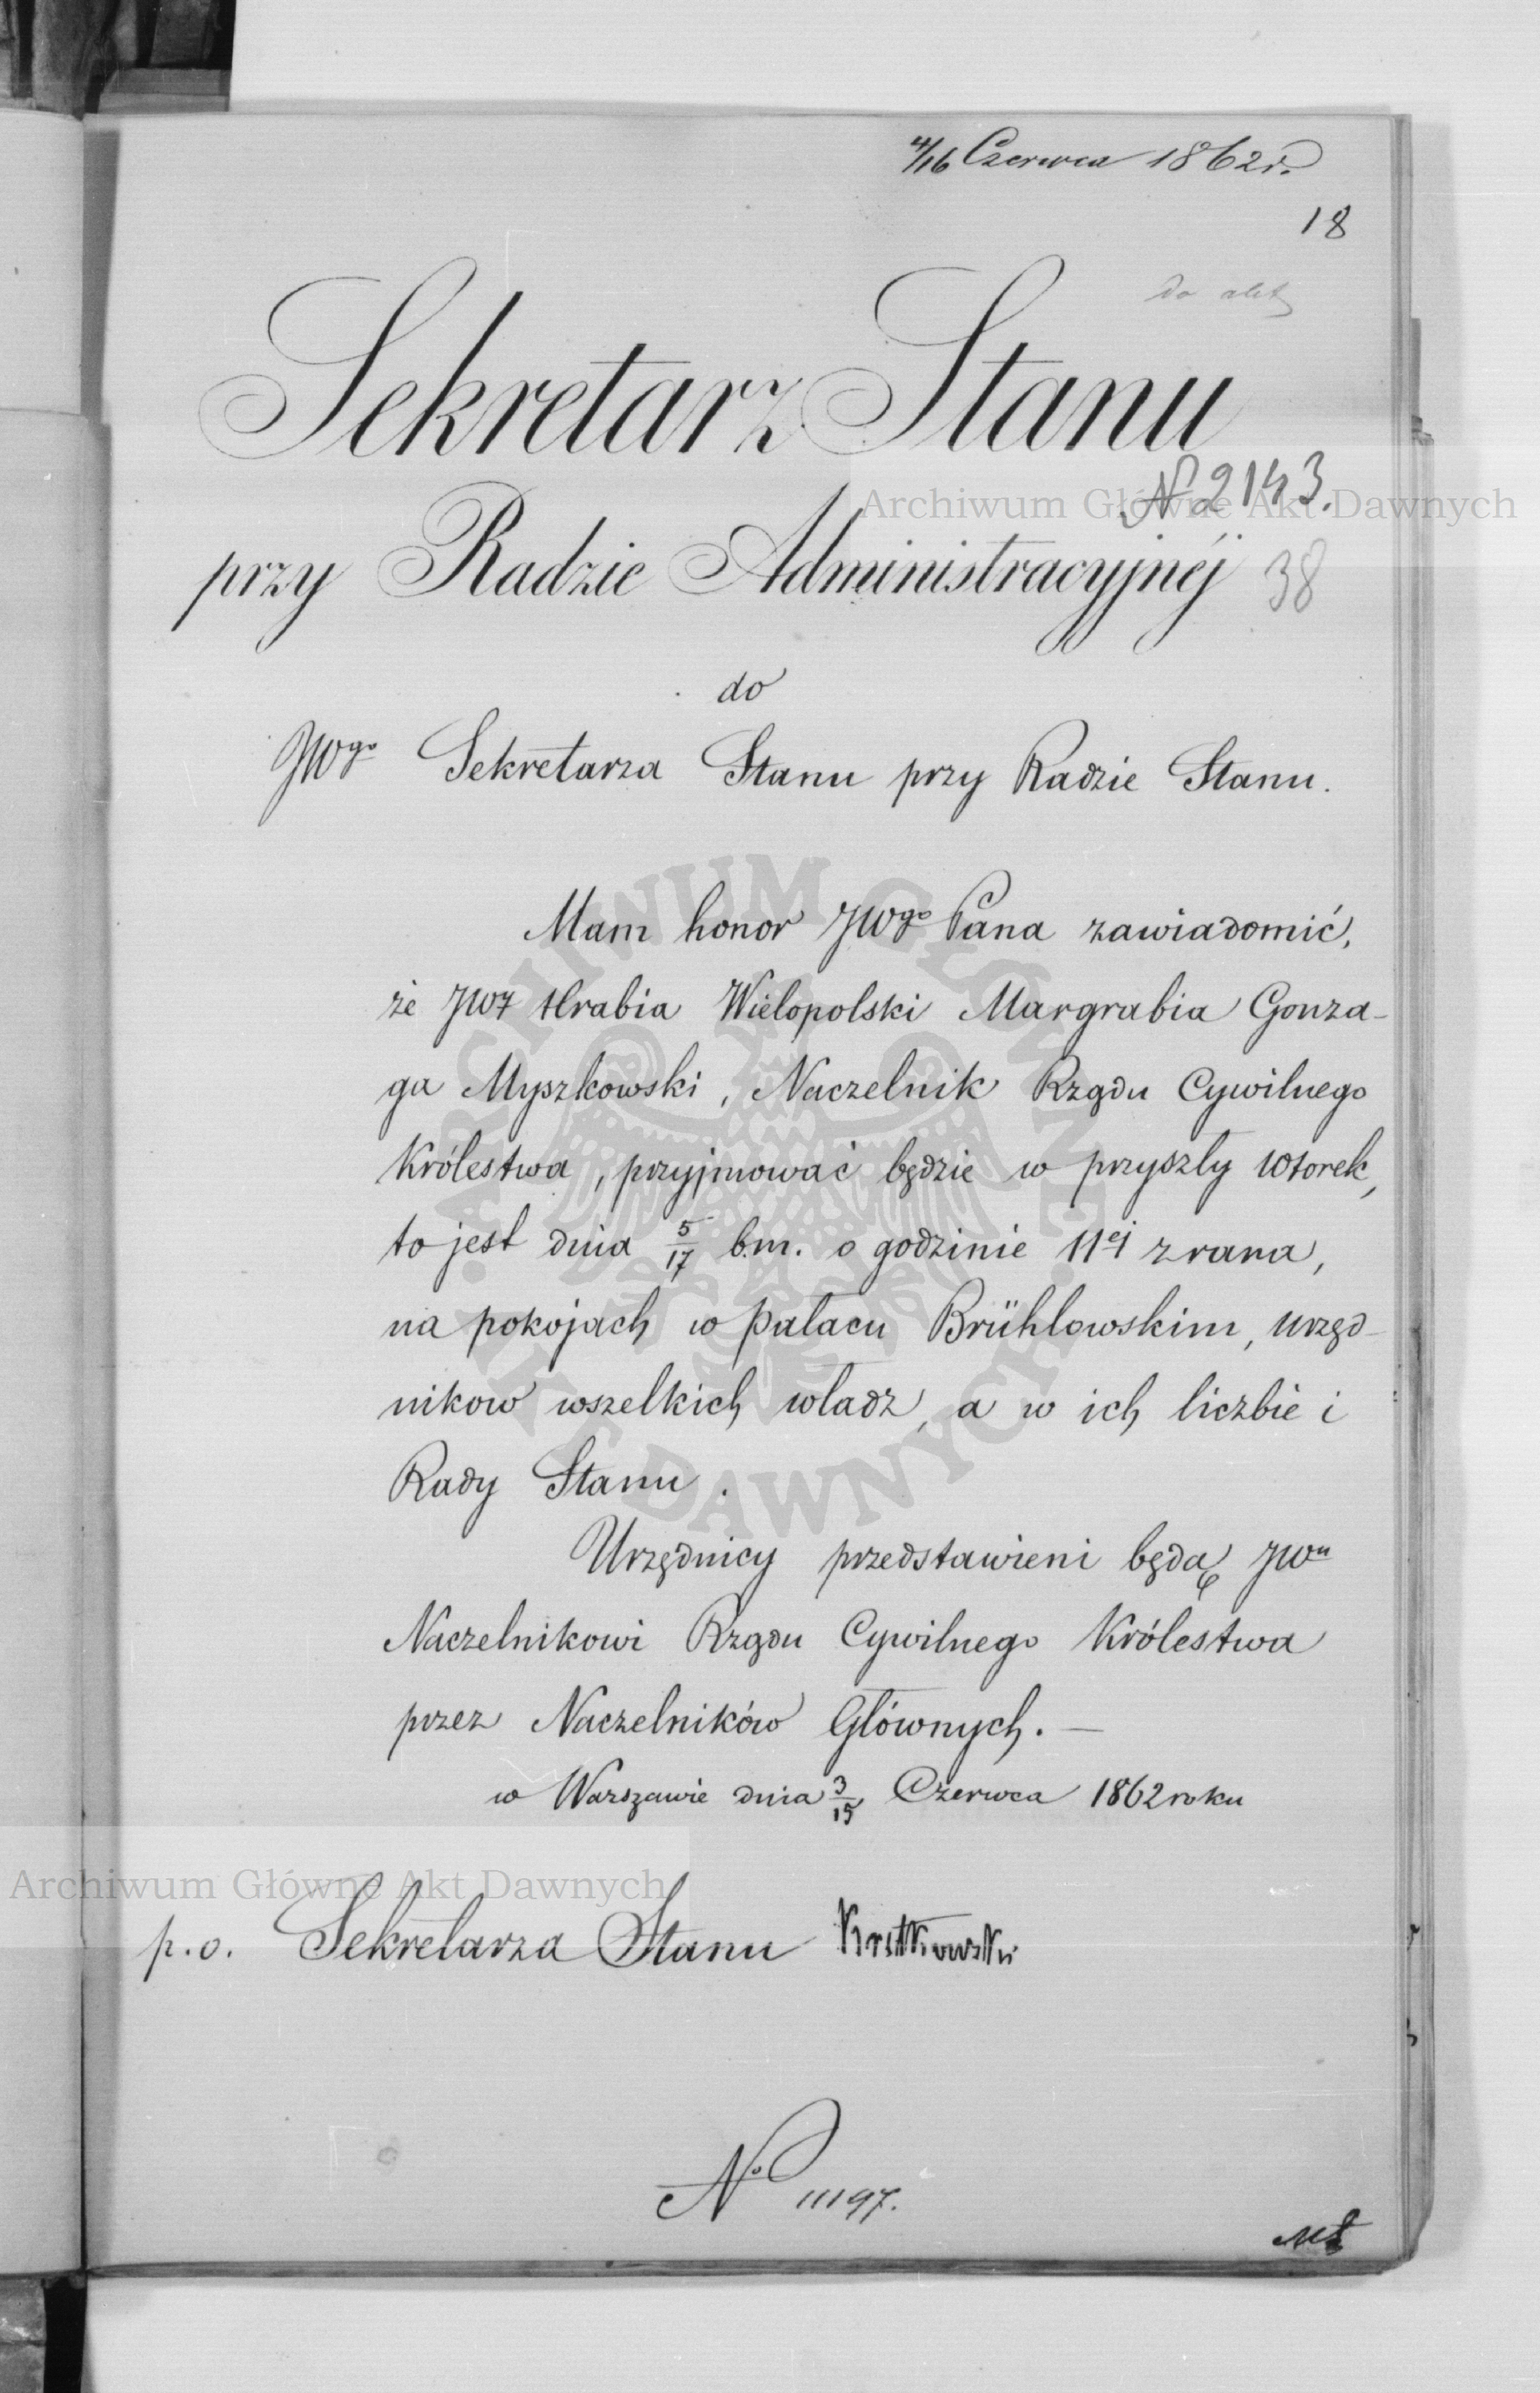 4/16 Czerwca 1862 r.
18
do akt
Sekretarz Stanu
N 2143.
Archiwum Główne Akt Dawnych
przy Radzie Administracyjnéj 38
do
JWgo Sekretarza Stanu przy Radzie Stanu.
Mam honor JWgo Pana zawiadomić,
że JW Hrabia Wielopolski Margrabia Gonza-
ga Myszkowski, Naczelnik Rządu Cywilnego
Królestwa, przyjmować będzie w przyszły Wtorek,
to jest dnia 5/17 b.m. o godzinie 11ej zrana,
na pokojach w pałacu Brühlowskim, urzęd-
nikow wszelkich władz, a w ich liczbie i
Rady Stanu.
Urzędnicy przedstawieni będą JWu
Naczelnikowi Rządu Cywilnego Królestwa
przez Naczelników Głównych. —
w Warszawie dnia 3/15 Czerwca 1862 roku
Archiwum Główne Akt Dawnych
p.o. Sekretarza Stanu
No 11197.
ARCHIWUM GŁÓWNE AKT DAWNYCH